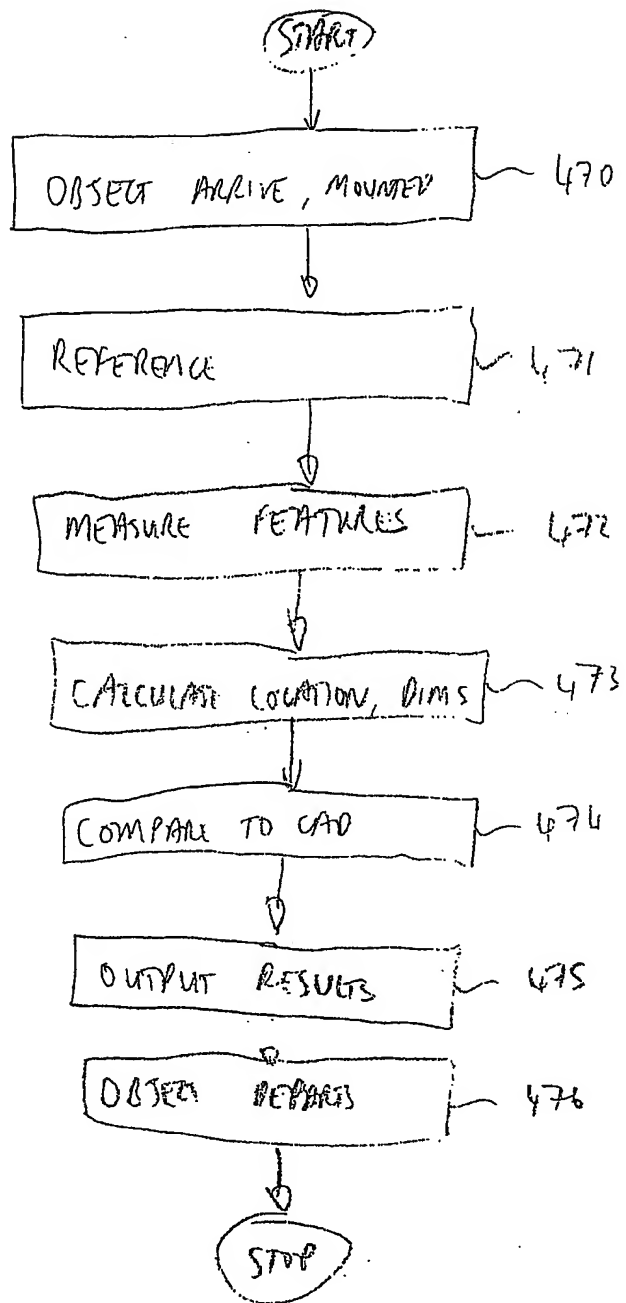 START
OBJECT ARRIVE, MOUNTED 470
REFERENCE 471
MEASURE FEATURES 472
CALCULATE LOCATION, DIMS 473
COMPARE TO CAD 474
OUTPUT RESULTS 475
OBJECT DEPARTS 476
STOP